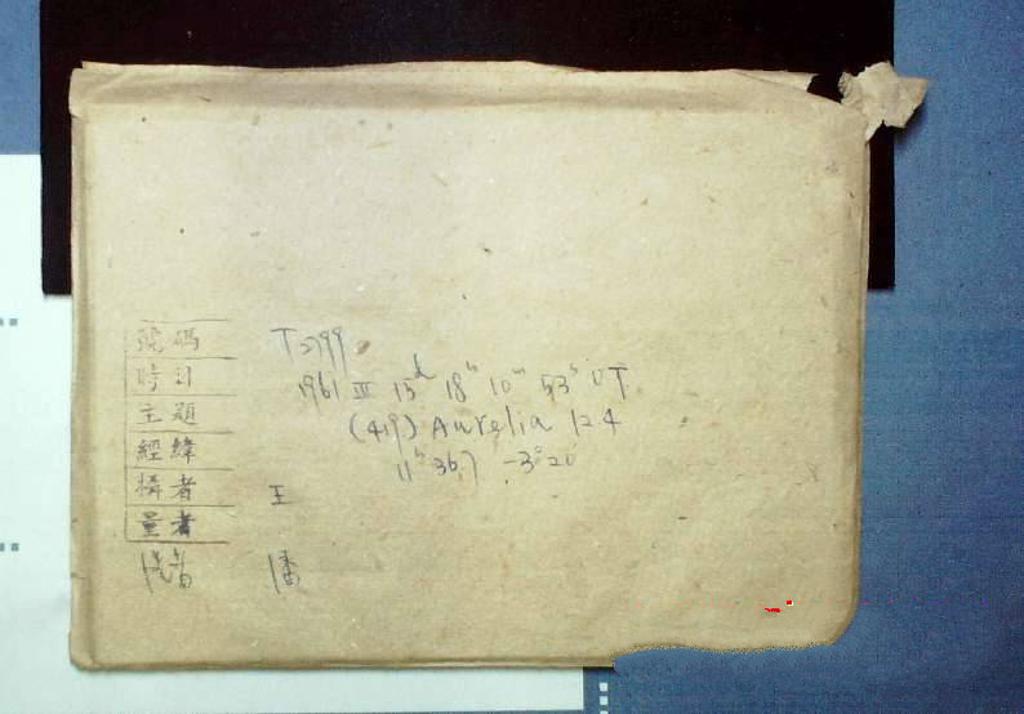 號碼 T2799
時日 1961 III 15d 18h 10m 53s UT
主題 (419) Aurelia 12.4
經緯 11h 36.7 -3°20'
攝者 王
量者
洗者 潘